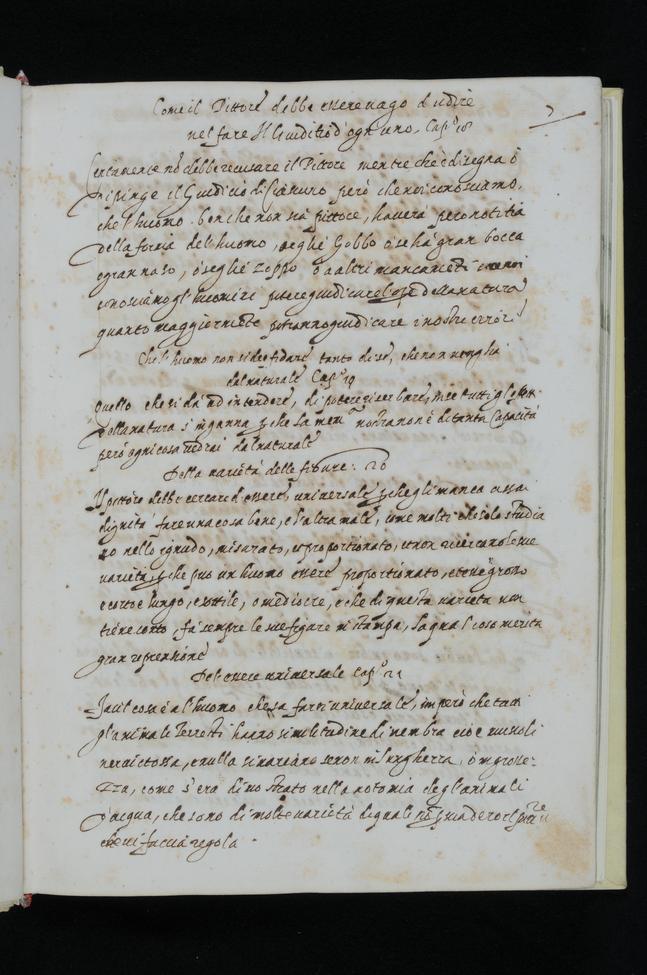 Come il Pittore debbe essere vago d'udire
nel fare Il Giuditio d'ogn'uno. Cap.º 18
7
Certamente nõ debbe recusare il Pittore mentre che disegna ò
dipinge il Giudicio di ciascuno però che noi conosciamo,
che l'huomo benche non sia pittore, havera però notitia
della forma del'huomo, s'egli è Gobbo ò se hà gran bocca
ò gran naso, ò s'egli è Zoppo ò altri mancamenti
conosciamo gl'huomini potere giudicare l'ope della natura
quanto maggiormẽte potranno giudicare i nostri errori
Che l'huomo non si dee fidare tanto di se, che non veggha
dal naturale Cap.º 19
Quello che si dà ad intendere, di potere riserbare, in se tutti gl'effetti
della natura s'inganna, che la mem.ª nostra non è di tanta Capacità
però ogni cosa vedrai dal naturale
Della varietà delle figure. 20
Il pittore debbe cercare d'essere universale, che gli manca assai
dignità fare una cosa bene, e l'altra male, come molti che solo studia
no nello ignudo, misurato, et proportionato, et non ricercano le sue
varietà, che può un huomo essere proportionato, et essere grosso
e corto e lungo, e sottile, o mediocre, e che di questa varieta non
tiene conto, fà sempre le sue figure in stampa, la qual cosa merita
gran reprensione
Del'essere universale Cap.º 21
Facil cosa è al'huomo che sa farsi universale, imperò che tutti
gl'animali Terrestri hanno similitudine di membra cioè muscoli
nervi et ossa, e nulla si variano se non in lunghezza, ò in grosse:
zza, come s'era dimostrato nella notomia degl'animali
d'acqua, che sono di molte varietà di quali nõ
che vi faccia regola.